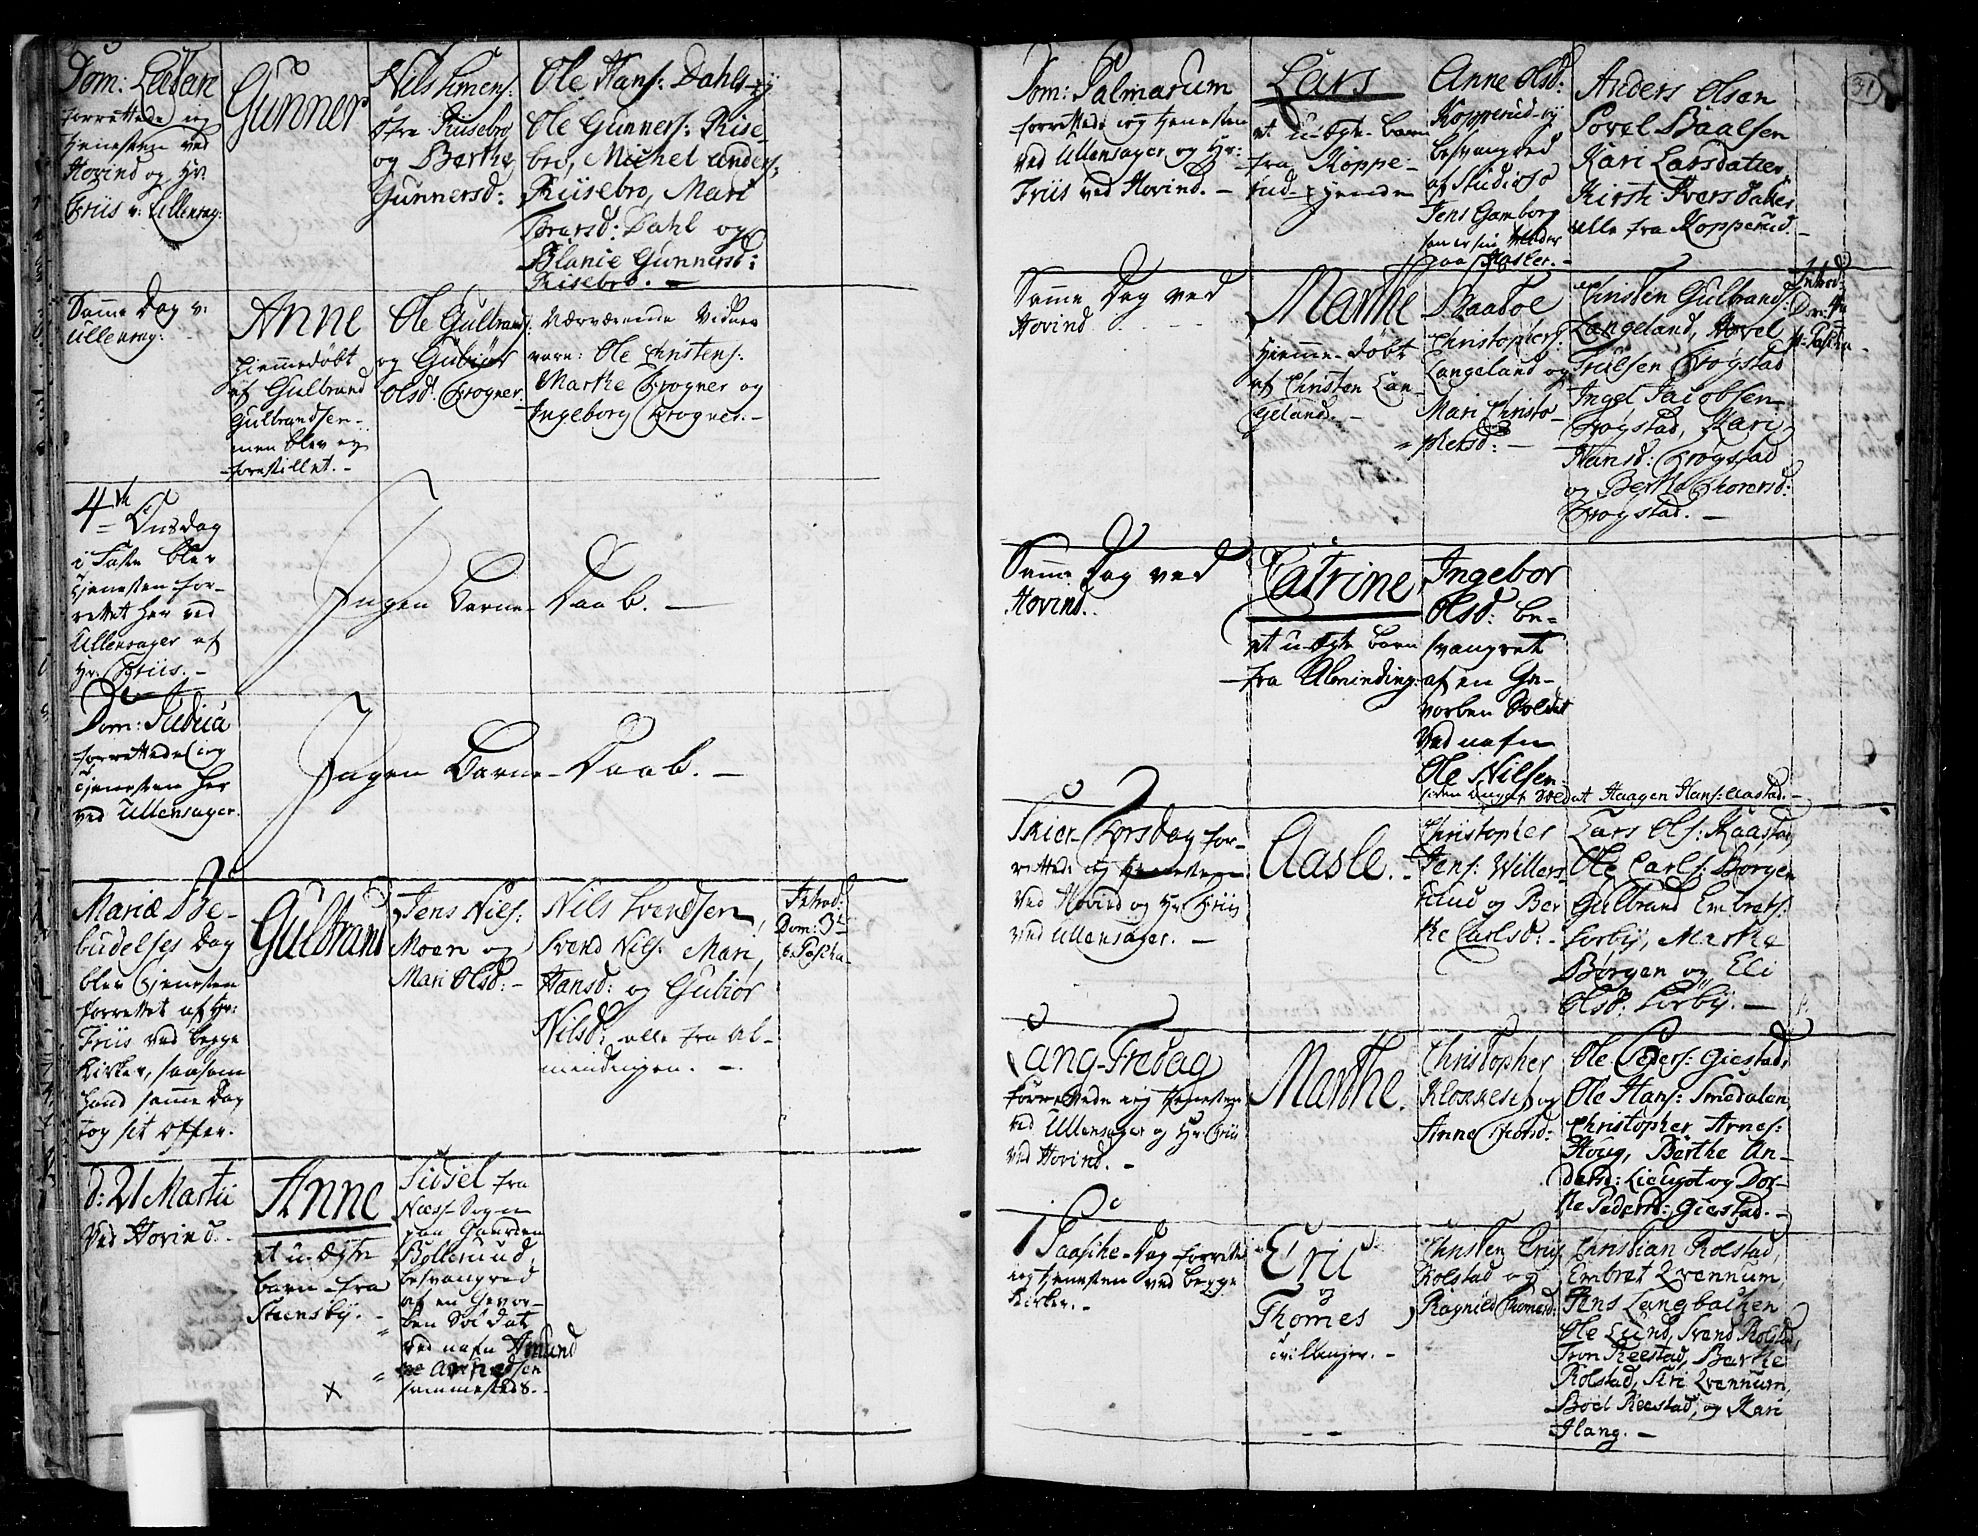 Dom: Lætare
forrettede jeg
tjenesten ved
Hovind og Hr:
Friis v: Ullensag:
Gunner
Nils Simens:
Øfre Riisebro
og Berthe
Gunnersd:
Ole Hans: Dahls-eÿ
Ole Gunners: Rise-
bro, Michel Anders:
Riisebro, Mari
Brarsd: Dahl og
Blanie Gunnersd:
Risebro. -
Samme Dag v:
Ullensag:
Anne
Hjemmedøbt
af Gulbrand
Gulbrandsen -
men blev og
forestillet. -
Ole Gulbrands:
og Gubiør
Olsd: Frogner.
Nærværende Vidner
vare: Ole Christens:
Marthe Frogner og
Ingeborg Frogner. -
4de Onsdag
i Faste blev
tjenesten for-
rettet her ved
Ullensager af
Hr: Friis. -
Ingen Barne-Daab. -
Dom: Judica
forrettede jeg
tjenesten her
ved Ullensager.
Ingen Barne-Daab. -
Mariæ Be-
budelses Dag
blev tjenesten
forrettet af Hr:
Friis ved begge
Kirker, saasom
hand samme Dag
tog sit Offer.
Gulbrand
Jens Niels:
Moen og
Mari Olsd: -
Nils Svendsen,
Svend Nils: Mari
Hansd: og Gubiør
Nilsd: alle fra Al-
mindingen. -
Introd:
Dom: 3tia
p: Pascha
d: 21 Martii
ved Hovind. -
Anne
et u-ægte
barn fra
Steensbÿ. -
Sidsel fra
Næss-Sogn
paa Gaarden
Bollerud,
besvangred
af en Gevor-
ben Soldat
ved nafn Amund
sammesteds. -
31
Dom: Palmarum
forrettede jeg tjenesten
ved Ullensager og Hr:
Friis ved Hovind. -
Lars
et u-ægte barn
fra Koppe-
rud-eÿende
Anne Olsd:
Kopperud-eÿ
besvangred
af Studioso
Jens Gamborg
Anders Olsen
Povel Baalsen
Kari Larsdatter,
Kirsti Iversdatter
alle fra Kopperud. -
Samme Dag ved
Hovind
Marthe
Hjemme-døbt
af Christen Lan-
geland. -
Baatoe
Christophers:
Langeland og
Mari Christo-
phersd: -
Christen Gulbrands:
Langeland, Povel
Trulsen Frogstad
Ingel Jacobsen
Frogstad, Kari
Hansd: Frogstad
og Berthe Thorersd:
Frogstad. -
Introd:
Dom: 4ta
p: Pascha -
Samme Dag ved
Hovind.
Catrine
et u-ægte barn
fra Alminding:
Ingebor
Olsd: be-
svangret
af en Ge-
vorben Soldat
ved nafn
Ole Nilsen:
Soldat Haagen Hans: Aastad. -
Skier-Torsdag for-
rettede jeg tjenesten
ved Hovind og Hr: Friis
ved Ullensager. -
Aasle. -
Christopher
Jens: Willers-
rud og Ber
the Carlsd: -
Lars Ols: Raastad,
Ole Carls: Borgen
Gulbrand Embrets:
Lorbÿ, Marthe
Børgen og Eli
Olsd: Lorbÿ. -
Lang-Fredag
forrettede jeg tjenesten
ved Ullensager og Hr: Friis
ved Hovind. -
Marthe.
Christopher
Klokkesæt og
Anne Neersd:
Ole Peders: Giestad,
Ole Hans: Smedalen
Christopher Arnes:
Houg, Berthe An-
dersd: Lielygot og Dor-
the Pedersd: Giestad. -
1 Paasche-Dag forrettede
jeg tjenesten ved begge
Kirker. -
Eric
og
Thomes
tvillenger. -
Christen Erics:
Rolstad og
Ragnild Thomesd:
Christian Rolstad,
Embret Qvennum,
Jens Langbachen
Ole Lund, Svend Rolstad,
Tron Reestad, Berthe
Rolstad, Siri Qvennum,
Boel Reestad, og Kari
Hang. -